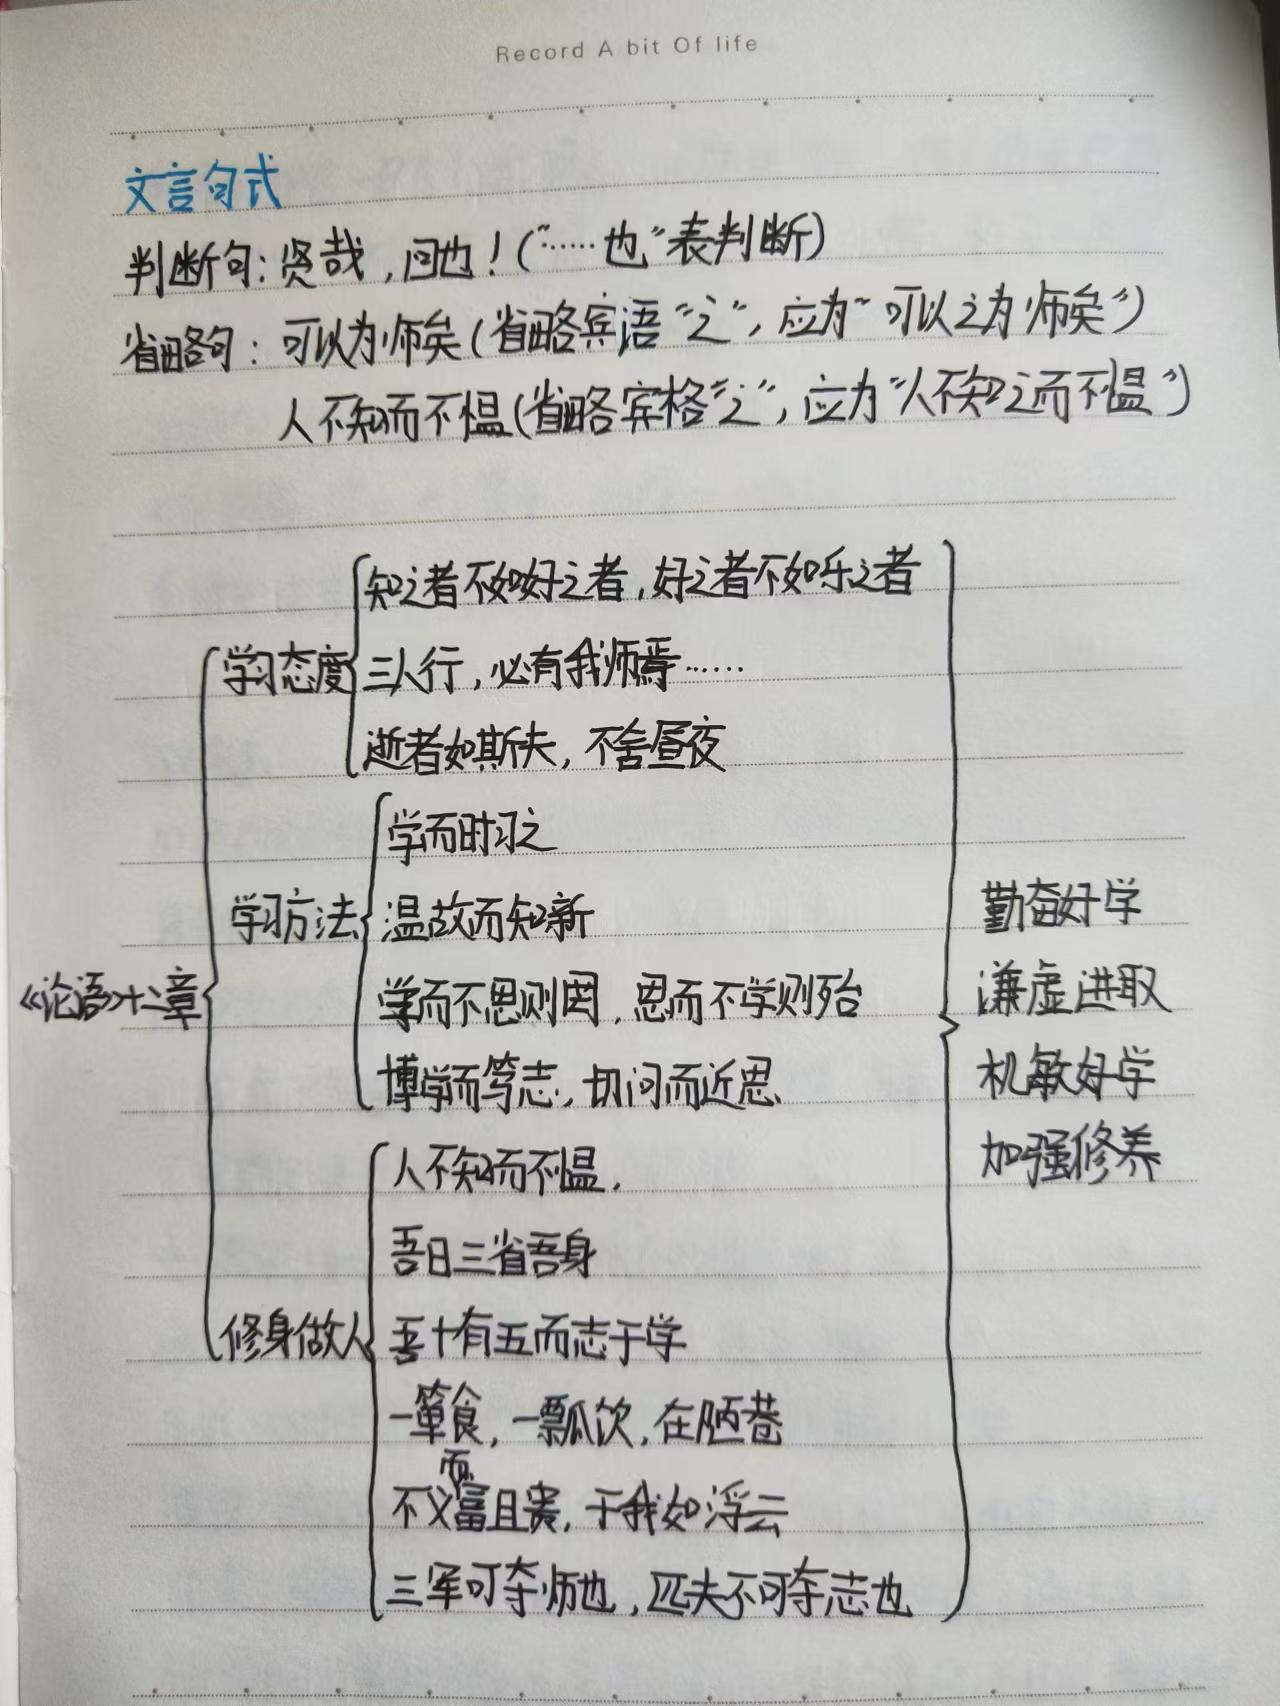 Record A bit Of life
文言句式
判断句：贤哉，回也！（“……也”表判断）
省略句：可以为师矣（省略宾语“之”，应为“可以之为师矣”）
人不知而不愠（省略宾格“之”，应为“人不知之而不愠”）
知之者不如好之者，好之者不如乐之者
学习态度
三人行，必有我师焉……
逝者如斯夫，不舍昼夜
学而时习之
学习方法
温故而知新
《论语》十二章
学而不思则罔，思而不学则殆
博学而笃志，切问而近思
人不知而不愠，
吾日三省吾身
修身做人
吾十有五而志于学
一箪食，一瓢饮，在陋巷
不义而富且贵，于我如浮云
三军可夺师也，匹夫不可夺志也
勤奋好学
谦虚进取
机敏好学
加强修养